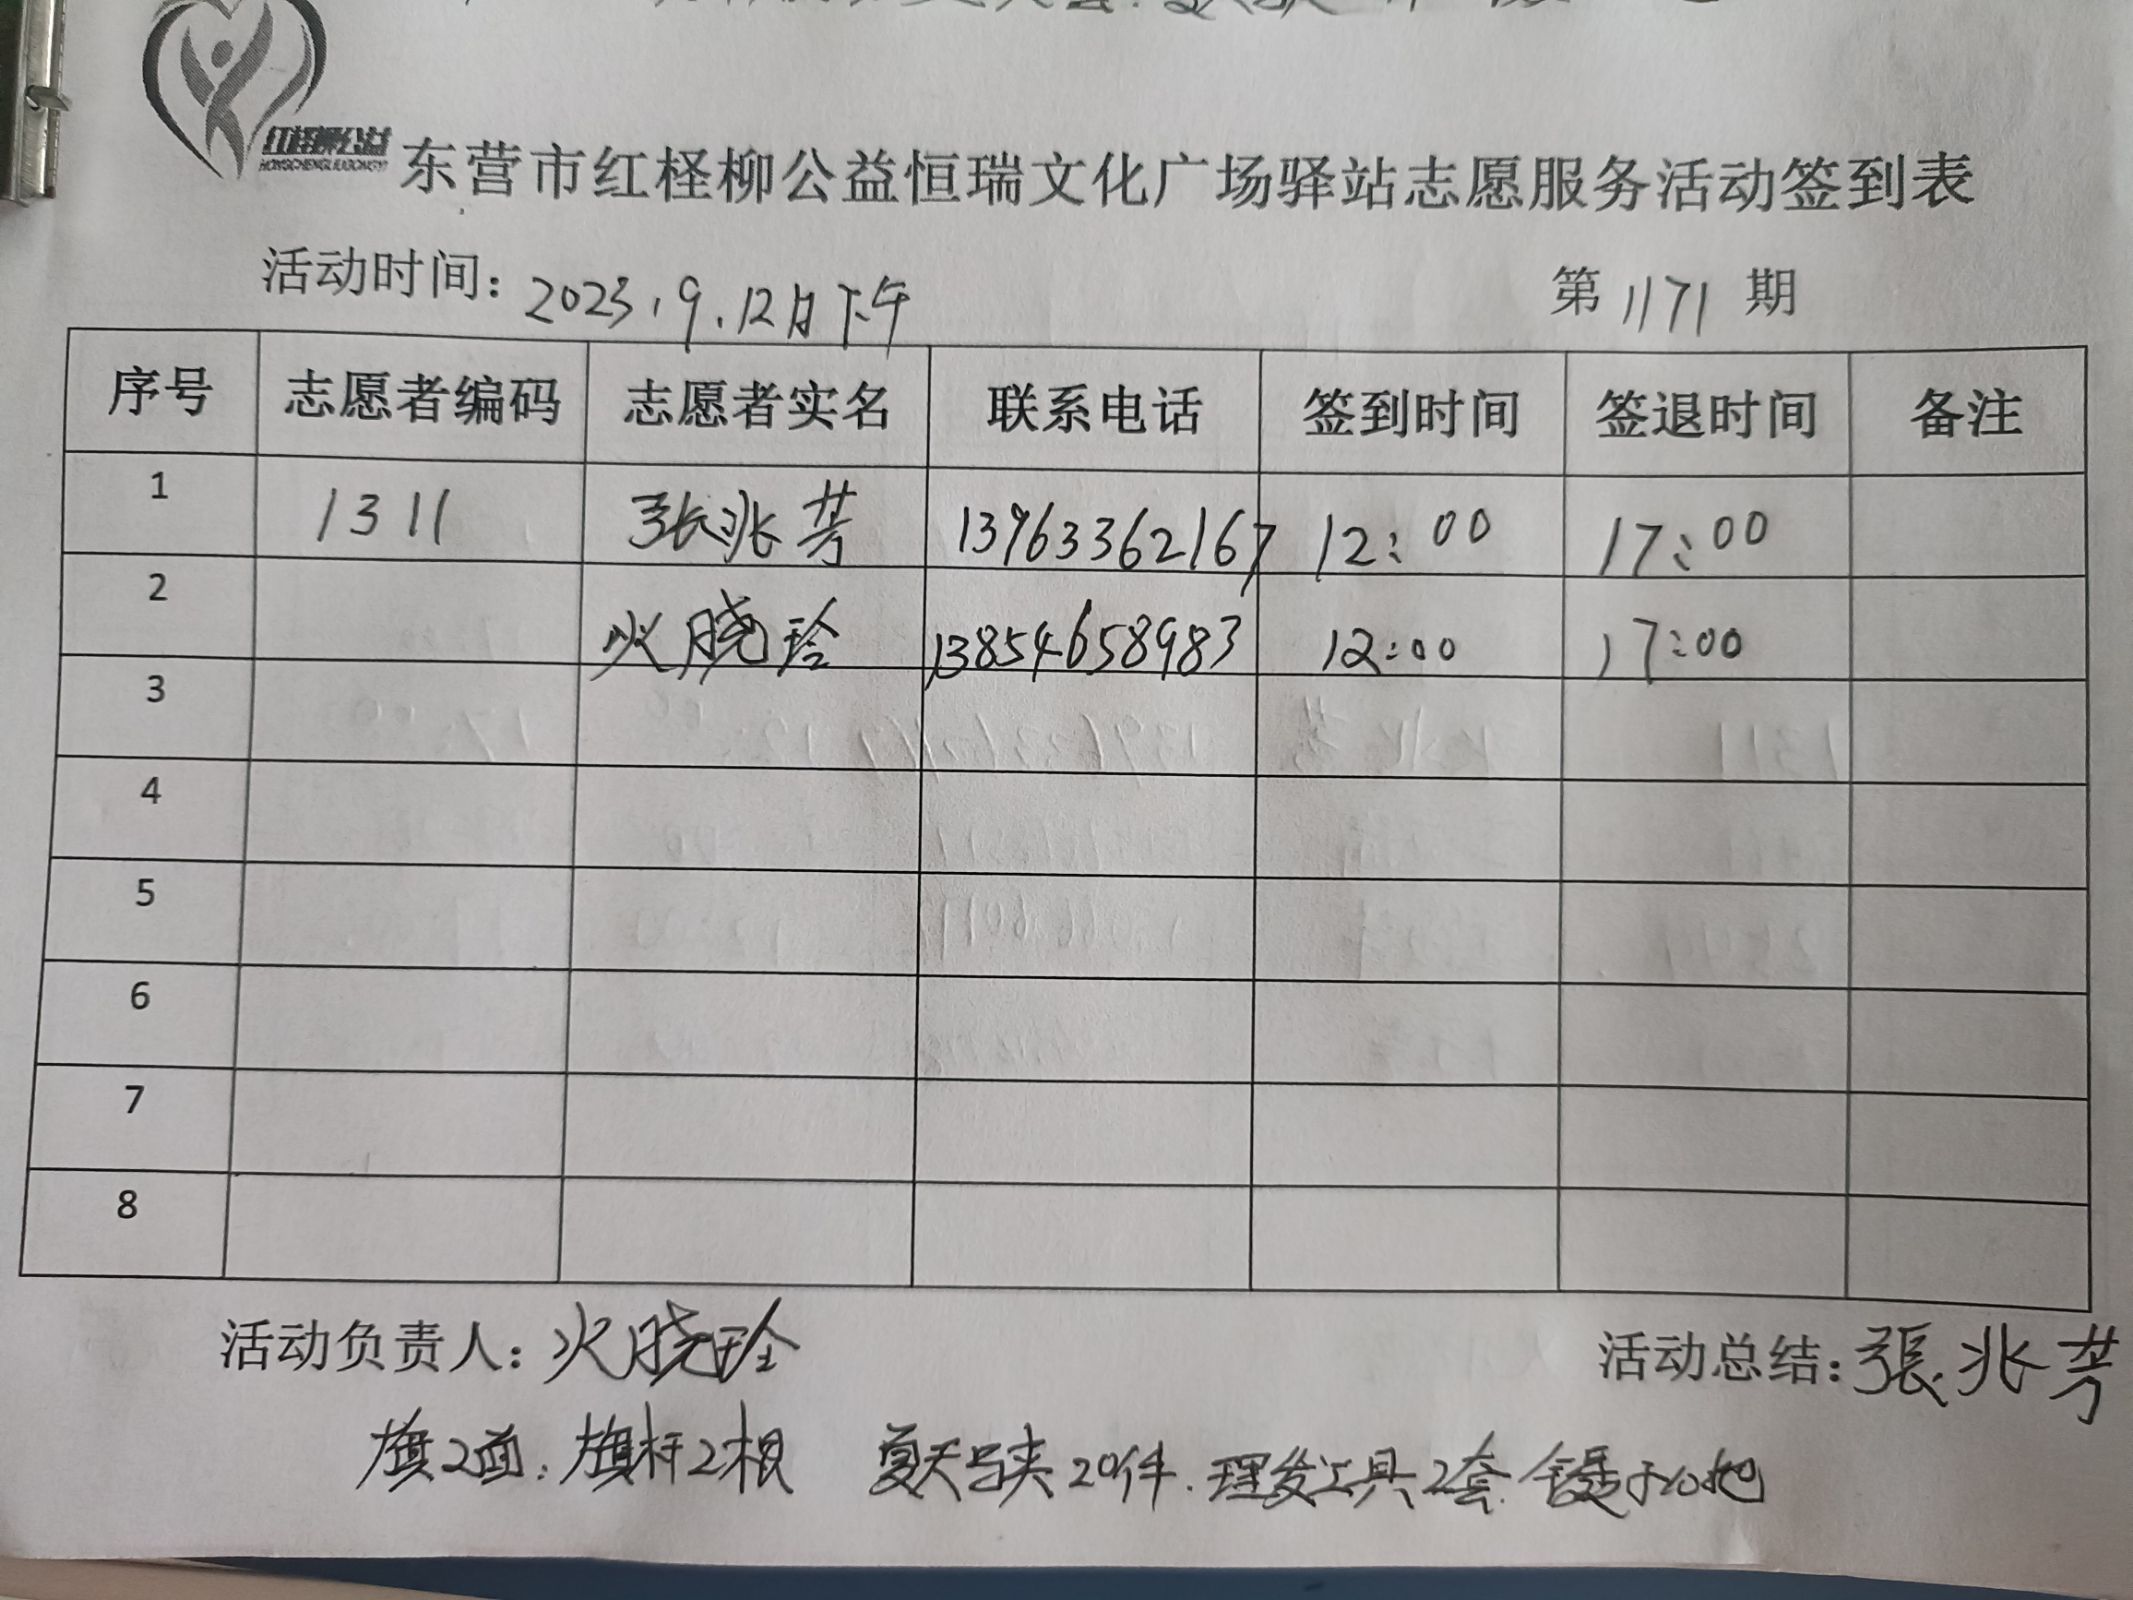 红柽柳公益
HONGCHENGLIUGONGYI
东营市红柽柳公益恒瑞文化广场驿站志愿服务活动签到表
活动时间: 2023.9.12日下午 第 1171 期
序号 志愿者编码 志愿者实名 联系电话 签到时间 签退时间 备注
1 1311 张兆芳 13963362167 12:00 17:00
2 火晓玲 13854658983 12:00 17:00
3
4
5
6
7
8
活动负责人: 火晓玲 活动总结: 張兆芳
旗2面. 旗杆2根 夏天马夹20件. 理发工具2套.